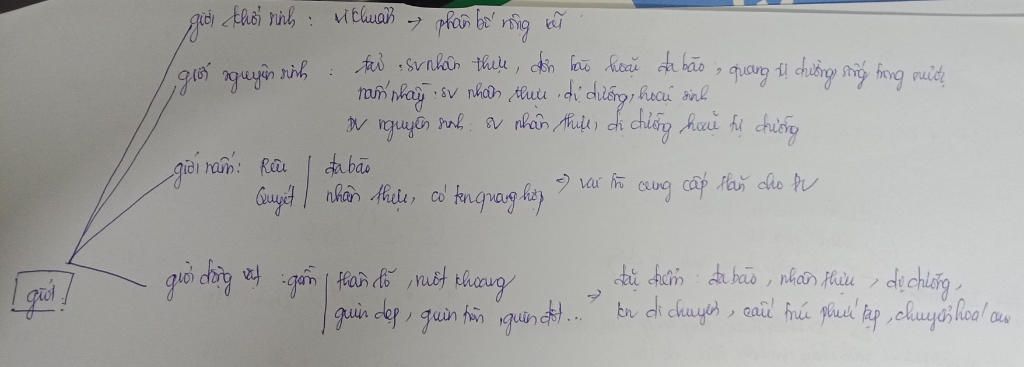 giới khởi sinh : vi khuẩn → phân bố rộng rãi
giới nguyên sinh : tảo : sv nhân thực, đơn bào hoặc đa bào, quang tự dưỡng, sống trong nước
nấm nhầy : sv nhân thực, dị dưỡng, hoại sinh
ĐV nguyên sinh : sv nhân thực, dị dưỡng hoặc tự dưỡng
giới nấm : Rêu | đa bào
Quyết | nhân thực, có kn quang hợp ⇒ vai trò cung cấp thăn cho ĐV
giới động vật : gồm | thân lỗ, ruột khoang
giun dẹp, giun tròn, giun đốt... ⇒ đặc điểm : đa bào, nhân thực, dị dưỡng,
kn di chuyển, cấu trúc phức tạp, chuyển hoá cao
giới